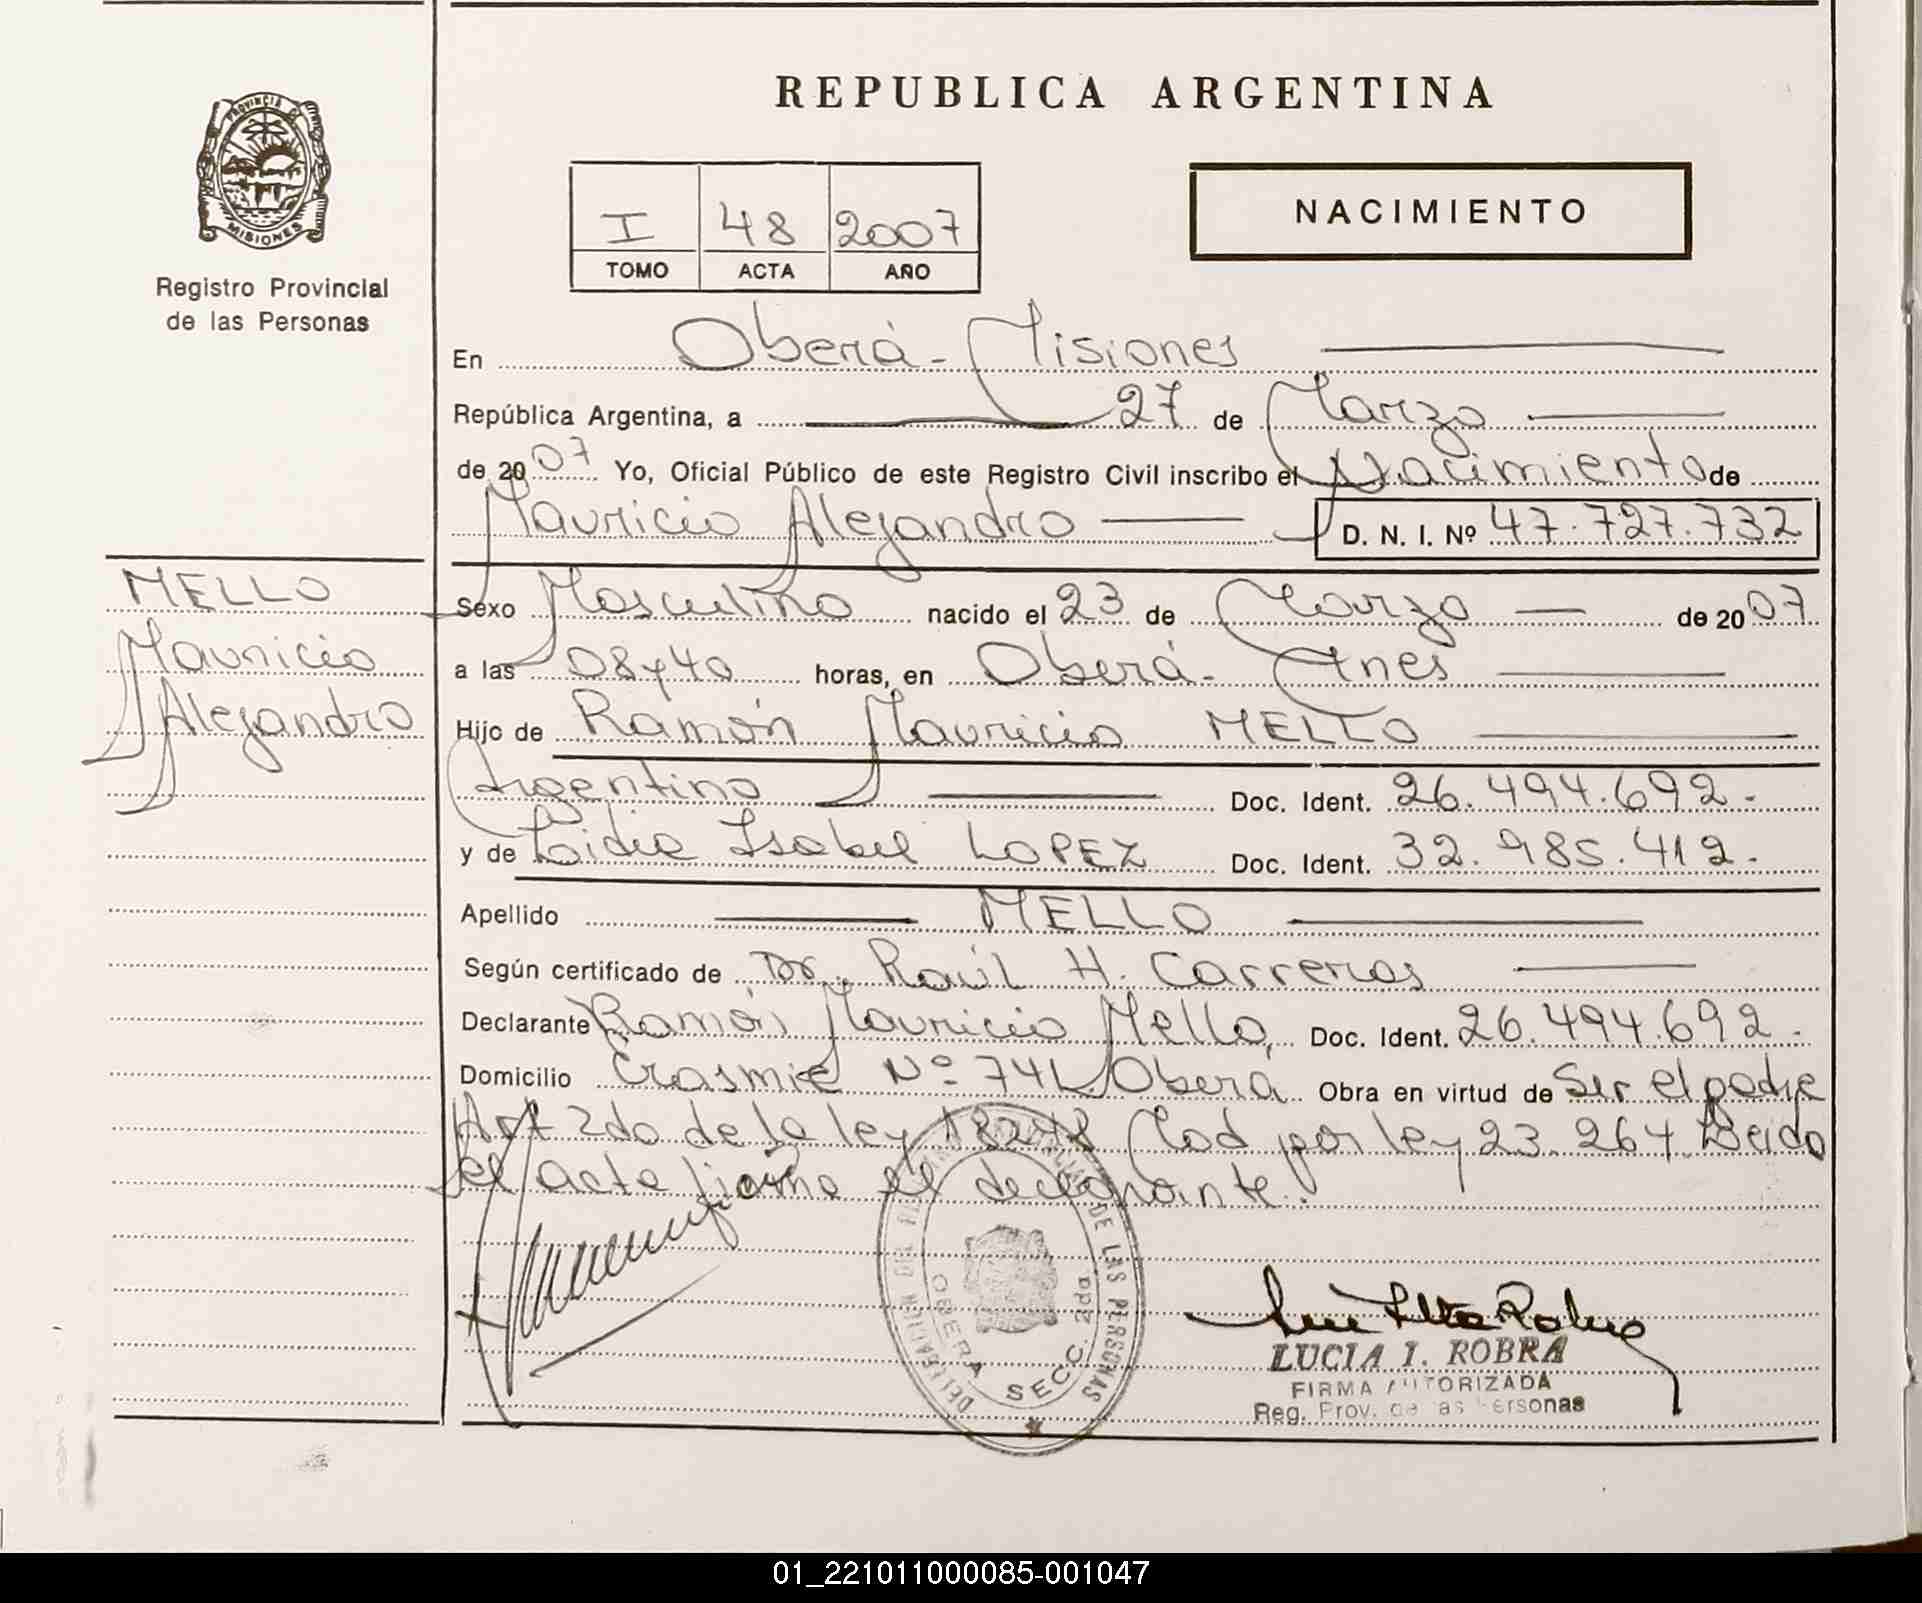 PROVINCIA DE
MISIONES
Registro Provincial
de las Personas
REPUBLICA ARGENTINA
I 48 2007
TOMO ACTA AÑO
NACIMIENTO
En Oberá - Misiones
República Argentina, a 27 de Marzo
de 2007 Yo, Oficial Público de este Registro Civil inscribo el Nacimiento de
Mauricio Alejandro D. N. I. Nº 47.727.732
MELLO
Mauricio
Alejandro
Sexo Masculino nacido el 23 de Marzo de 2007
a las 08y40 horas, en Oberá - Mnes
Hijo de Ramón Mauricio MELLO
Argentino Doc. Ident. 26.494.692.-
y de Lidia Isabel LOPEZ Doc. Ident. 32.985.412.-
Apellido MELLO
Según certificado de Dr. Raúl H. Carreras
Declarante Ramón Mauricio Mello, Doc. Ident. 26.494.692.-
Domicilio Nº 741 Oberá Obra en virtud de Ser el padre
Art 2do de la ley 18248 Mod por ley 23.264. Leida
el acta firma el declarante.
DELEGACION DEL DE LAS PERSONAS
OBERA SECC. 2da
LUCIA I. ROBRA
FIRMA AUTORIZADA
Reg. Prov. de las Personas
01_221011000085-001047